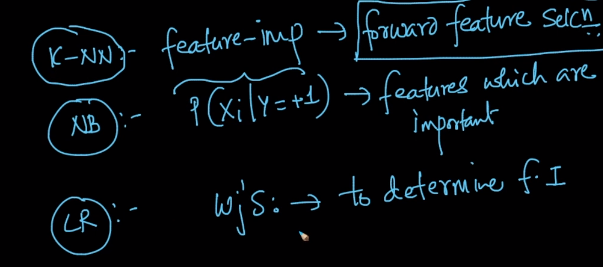 K-NN:- feature-imp → forward feature Selcn
NB:- P(Xi|Y=+1) → features which are
important
LR:- Wj's: → to determine f.I